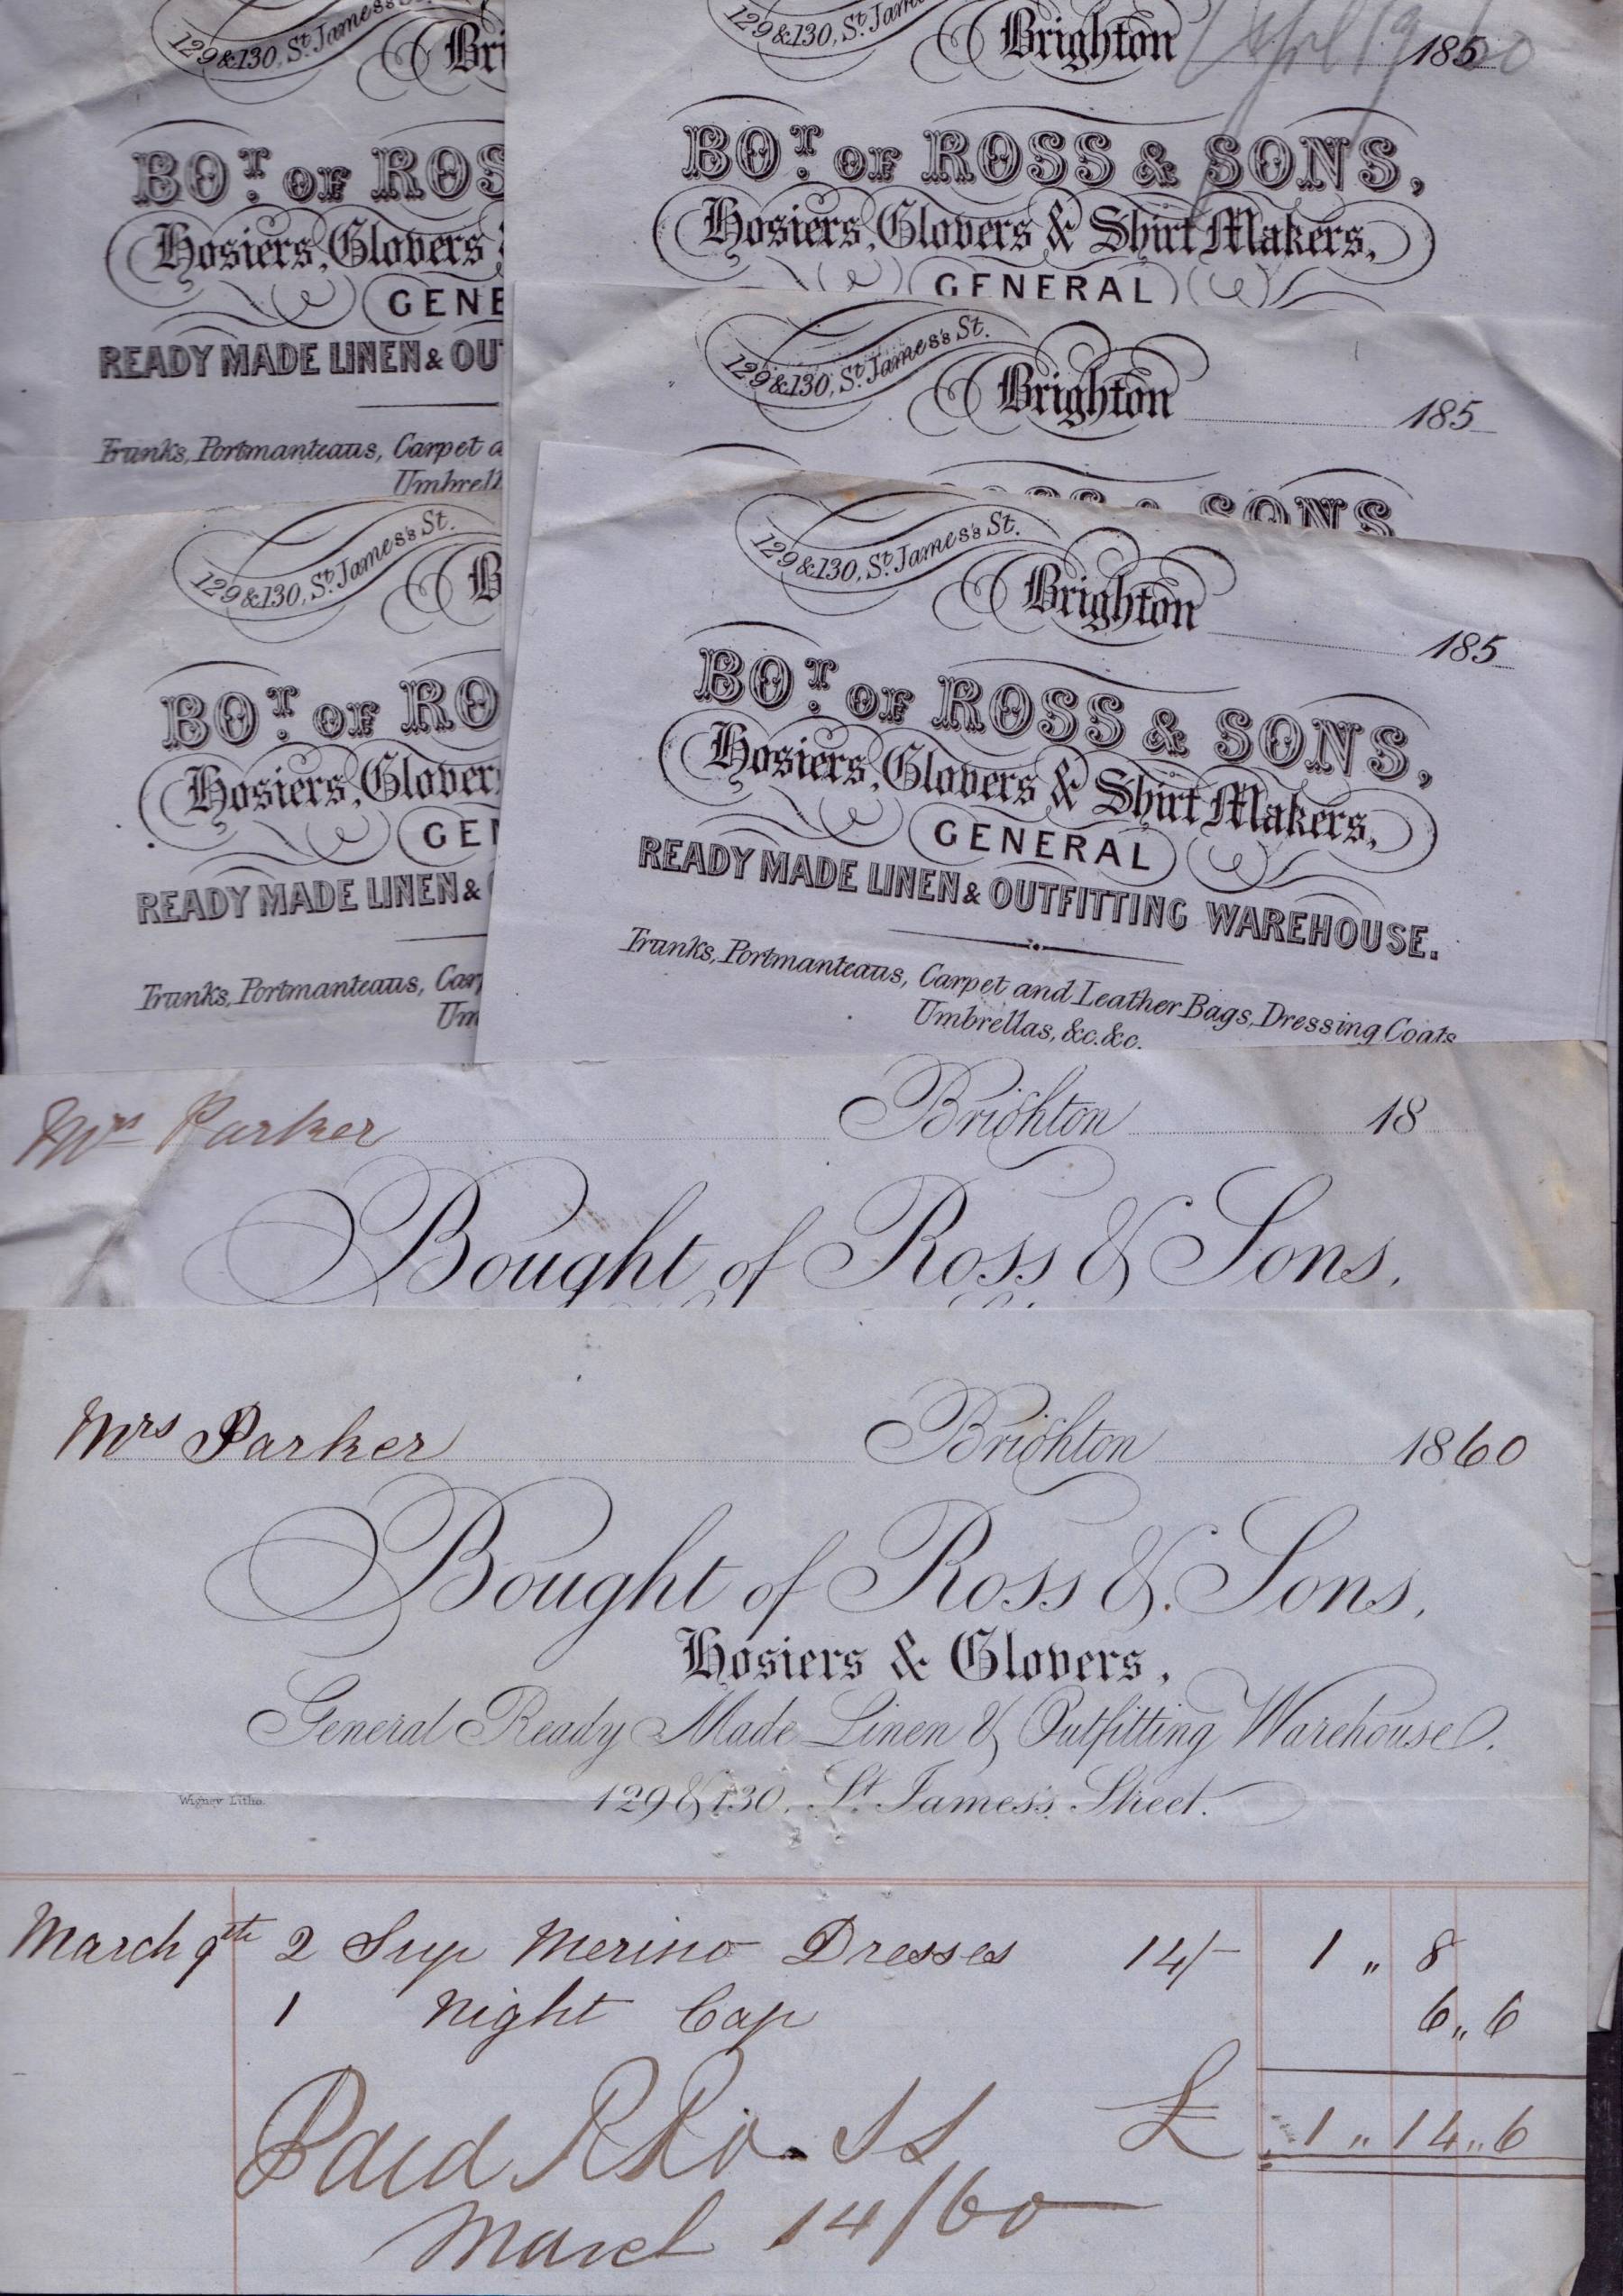 129 & 130, St. James's St.
Bri
BOT. OF ROS
Hosiers, Glovers
GENE
READY MADE LINEN & OUT
Trunks, Portmanteaus, Carpet a
Umbrell
129 & 130, St. James's St.
B
BOT. OF RO
Hosiers, Glover
GEN
READY MADE LINEN &
Trunks, Portmanteaus, Car
Um
129 & 130, St. Jam
Brighton April 19 1860
BOT. OF ROSS & SONS,
Hosiers, Glovers & Shirt Makers,
GENERAL
129 & 130, St. James's St.
Brighton 185
ROSS & SONS
129 & 130, St. James's St.
Brighton 185
BOT. OF ROSS & SONS,
Hosiers, Glovers & Shirt Makers,
GENERAL
READY MADE LINEN & OUTFITTING WAREHOUSE.
Trunks, Portmanteaus, Carpet and Leather Bags, Dressing Coats
Umbrellas, &c. &c.
Mrs Parker Brighton 18
Bought of Ross & Sons.
Mrs Parker Brighton 1860
Bought of Ross & Sons,
Hosiers & Glovers,
General Ready Made Linen & Outfitting Warehouse.
Wigney Litho. 129 & 130, St. James's Street.
March 9th 2 Sup Merino Dresses 14/- 1 " 8
1 Night Cap 6 " 6
£ 1 " 14 " 6
Paid R Ross
March 14/60